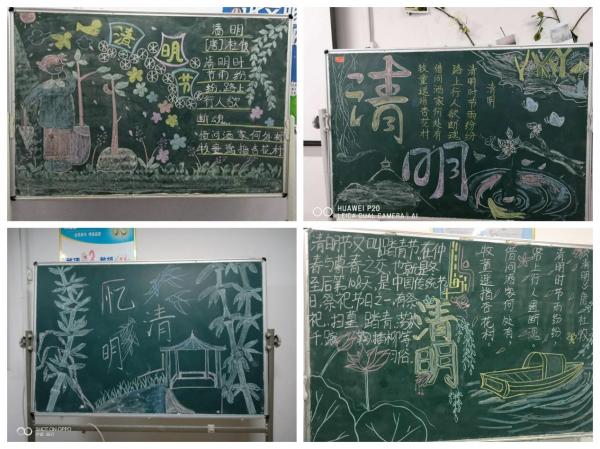 清明节
清明
[唐]杜牧
清明时
节雨纷
纷,路上
行人欲
断魂
借问酒家何处有
牧童遥指杏花村
清明
清明
清明时节雨纷纷
路上行人欲断魂
借问酒家何处有
牧童遥指杏花村
HUAWEI P20
LEICA DUAL CAMERA | AI
忆
清
明
SHOT ON OPPO
清明节又叫踏青节,在仲
春与暮春之交,也就是冬
至后第108天,是中国传统节
日,祭祀节日之一,有祭
祀、扫墓、踏青、荡秋
千、插柳等
习俗
清明
清明 唐 杜牧
清明时节雨纷纷,
路上行人欲断魂
借问酒家何处有
牧童遥指杏花村